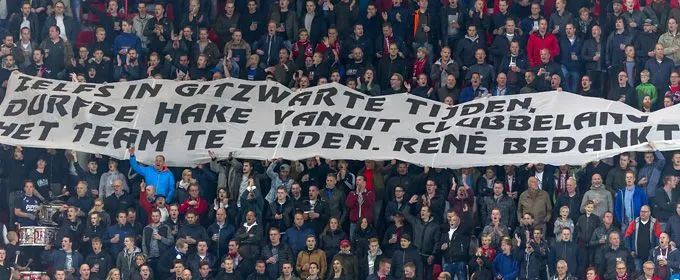 ZELFS IN GITZWARTE TIJDEN,
DURFDE HAKE VANUIT CLUBBELANG
HET TEAM TE LEIDEN. RENÉ BEDANKT